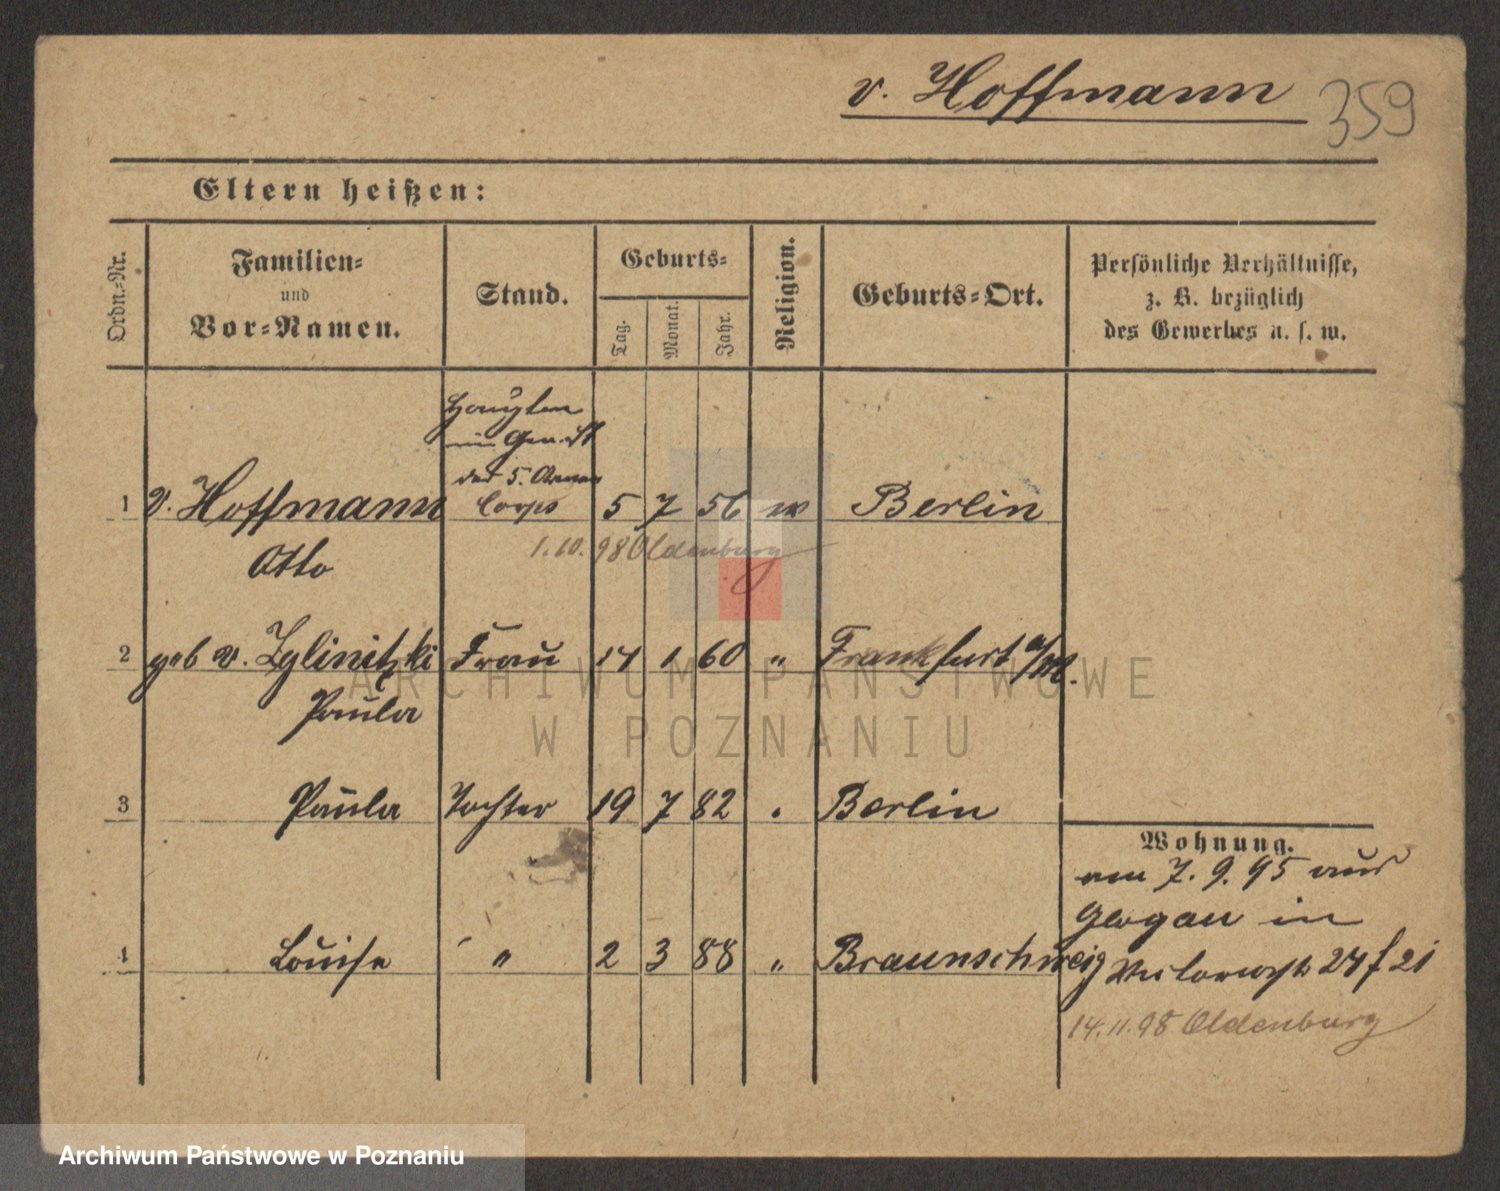 v. Hoffmann 359
Eltern heißen:
Ordn.-Nr.
Familien-
und
Vor-Namen.
Stand.
Geburts-
Tag.
Monat.
Jahr.
Religion.
Geburts-Ort.
Persönliche Verhältnisse,
z. B. bezüglich
des Gewerbes u. s. w.
im
des 5. Armee
1 v. Hoffmann Corps 5 7 56 ev Berlin
1.10.98 Oldenburg
Otto
2 geb v. Zglinitzki Frau 1 60 " Frankfurt a/M.
Paula
3 Paula Tochter 19 7 82 Berlin
Wohnung.
am 7.9.95 aus
Glogau in
4 Louise " 2 3 88 " Braunschweig
24 f 21
14.11.98 Oldenburg
ARCHIWUM PAŃSTWOWE
W POZNANIU
Archiwum Państwowe w Poznaniu